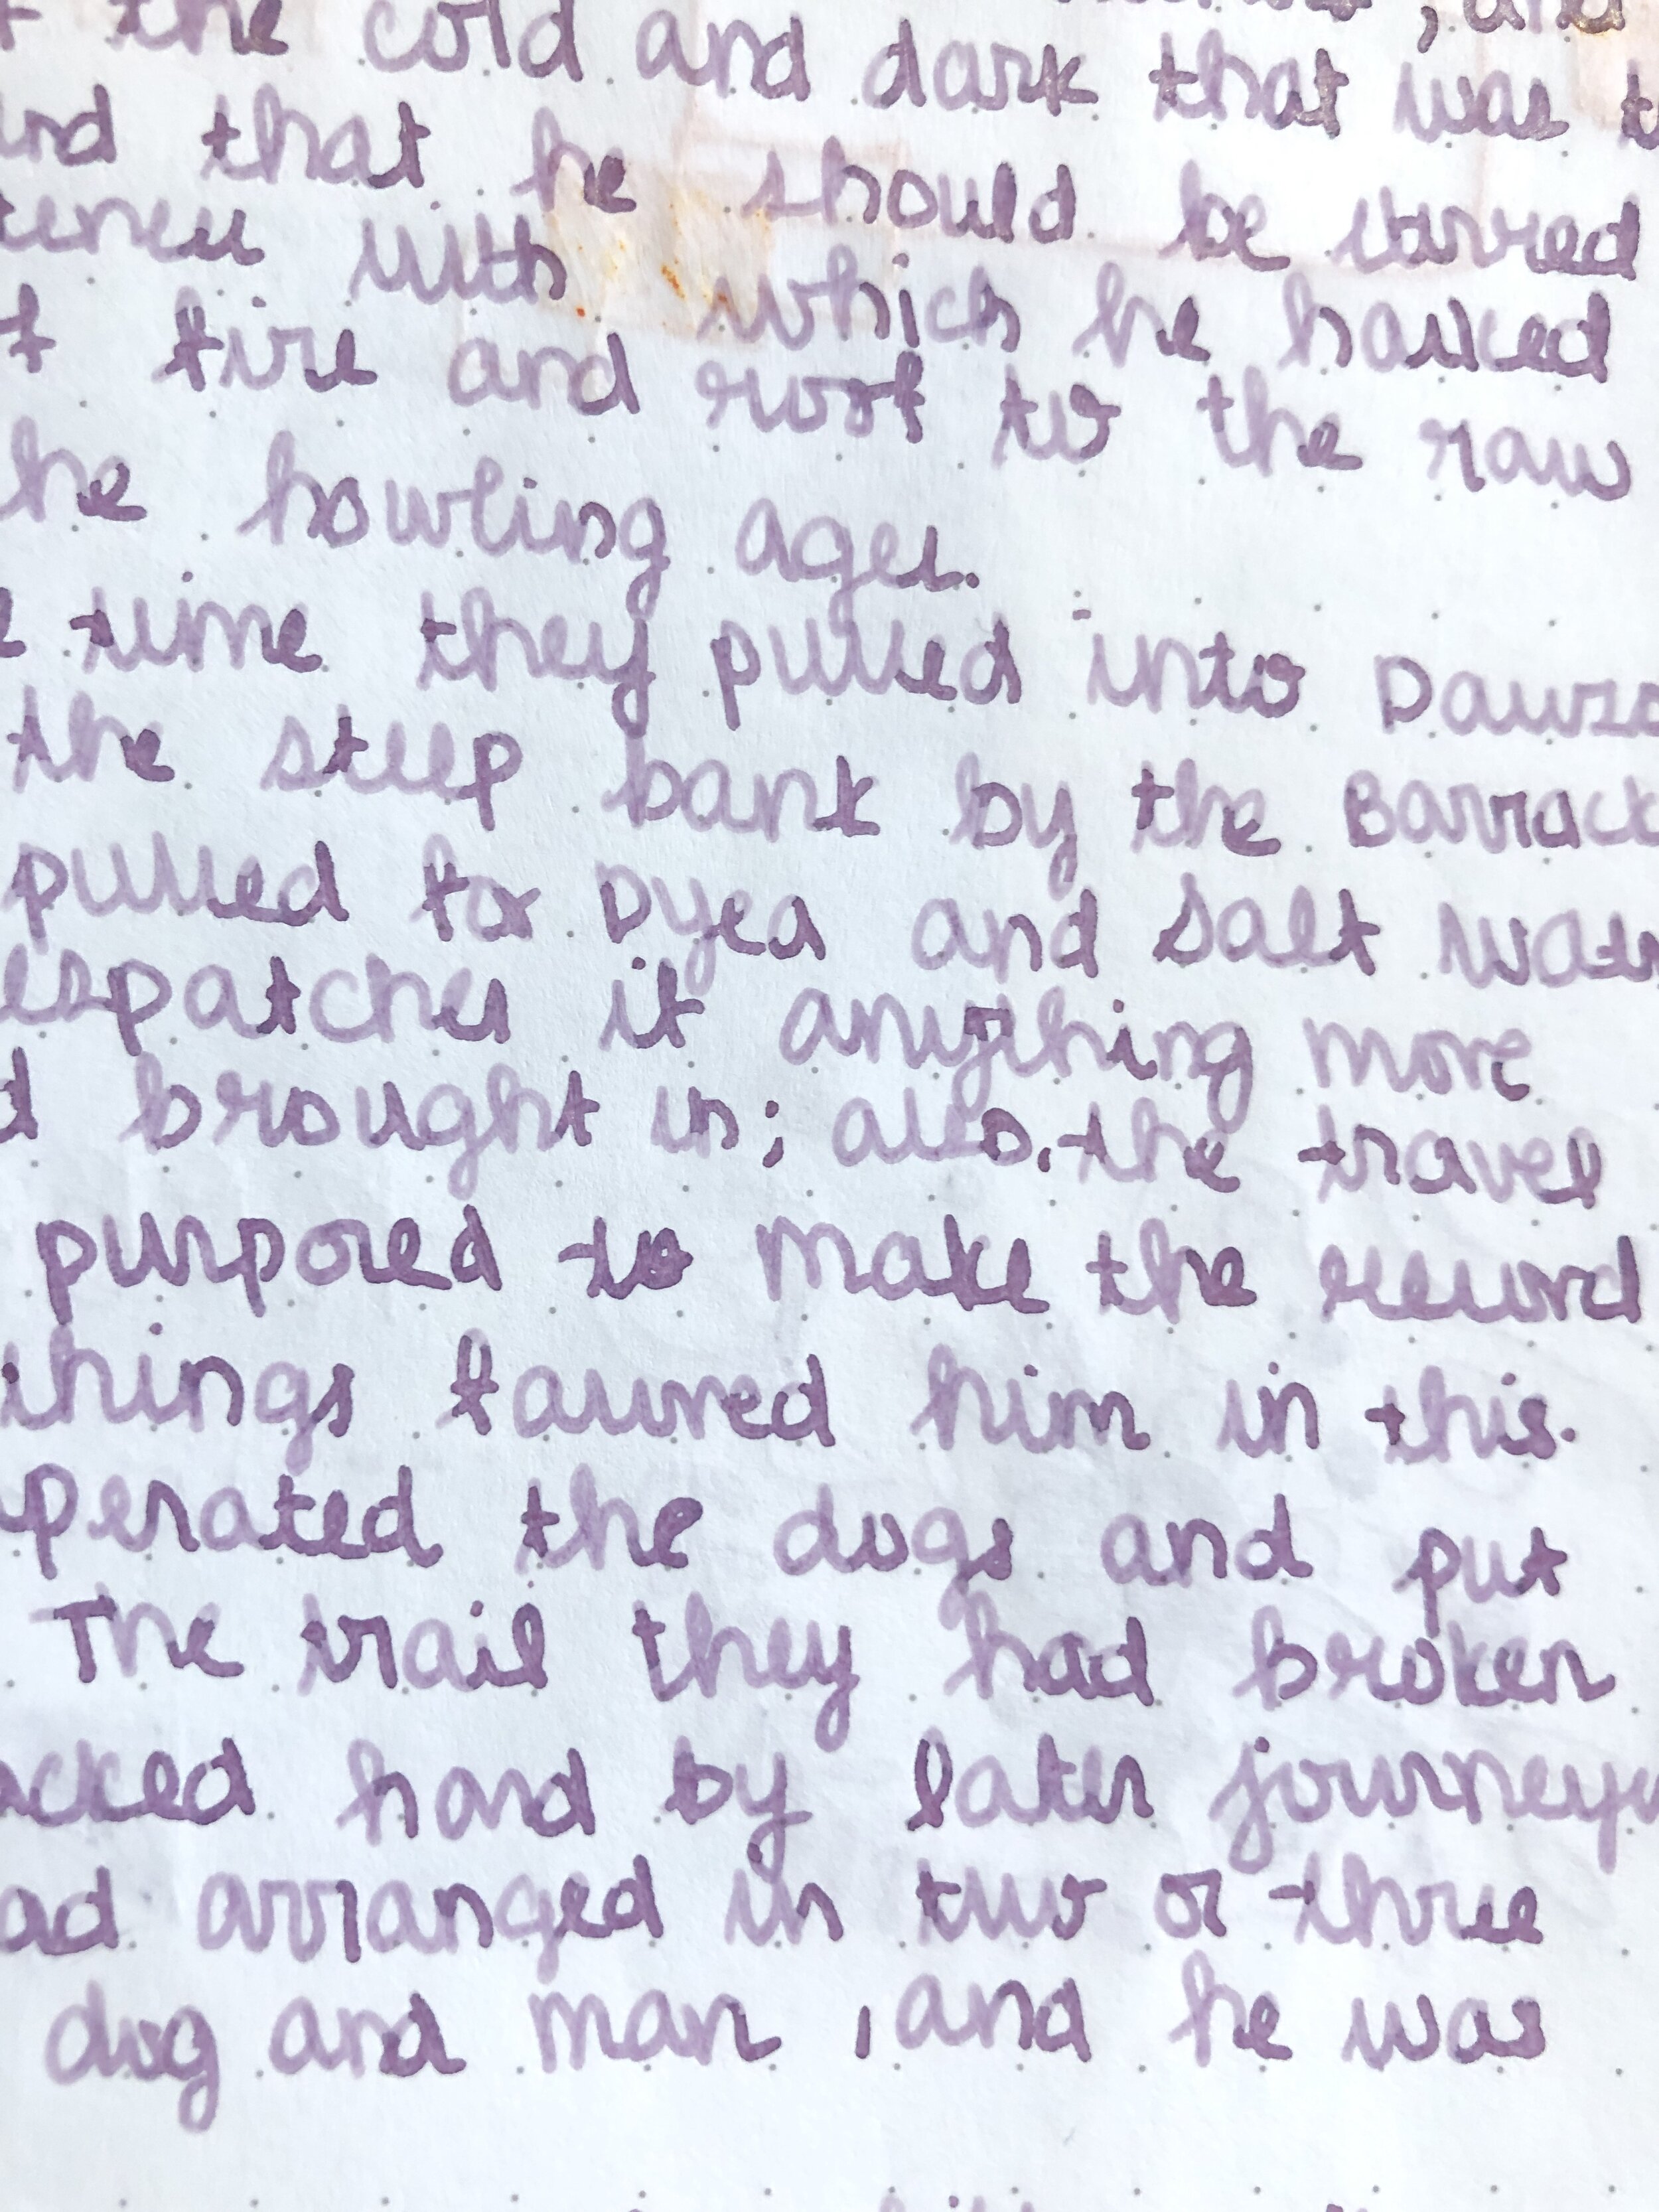 , and
the cold and dark that was
that he should be starred
with which he harked
fire and roof to the raw
he howling ages.
time they pulled into Dawso
the steep bank by the Barrack
pulled for Dyea and Salt Wate
espatches if anything more
d brought in; also, the travel
purposed to make the record
things favured him in this.
perated the dogs and put
The trail they had broken
acked hard by later journeye
ad arranged in two or three
dog and man, and he was